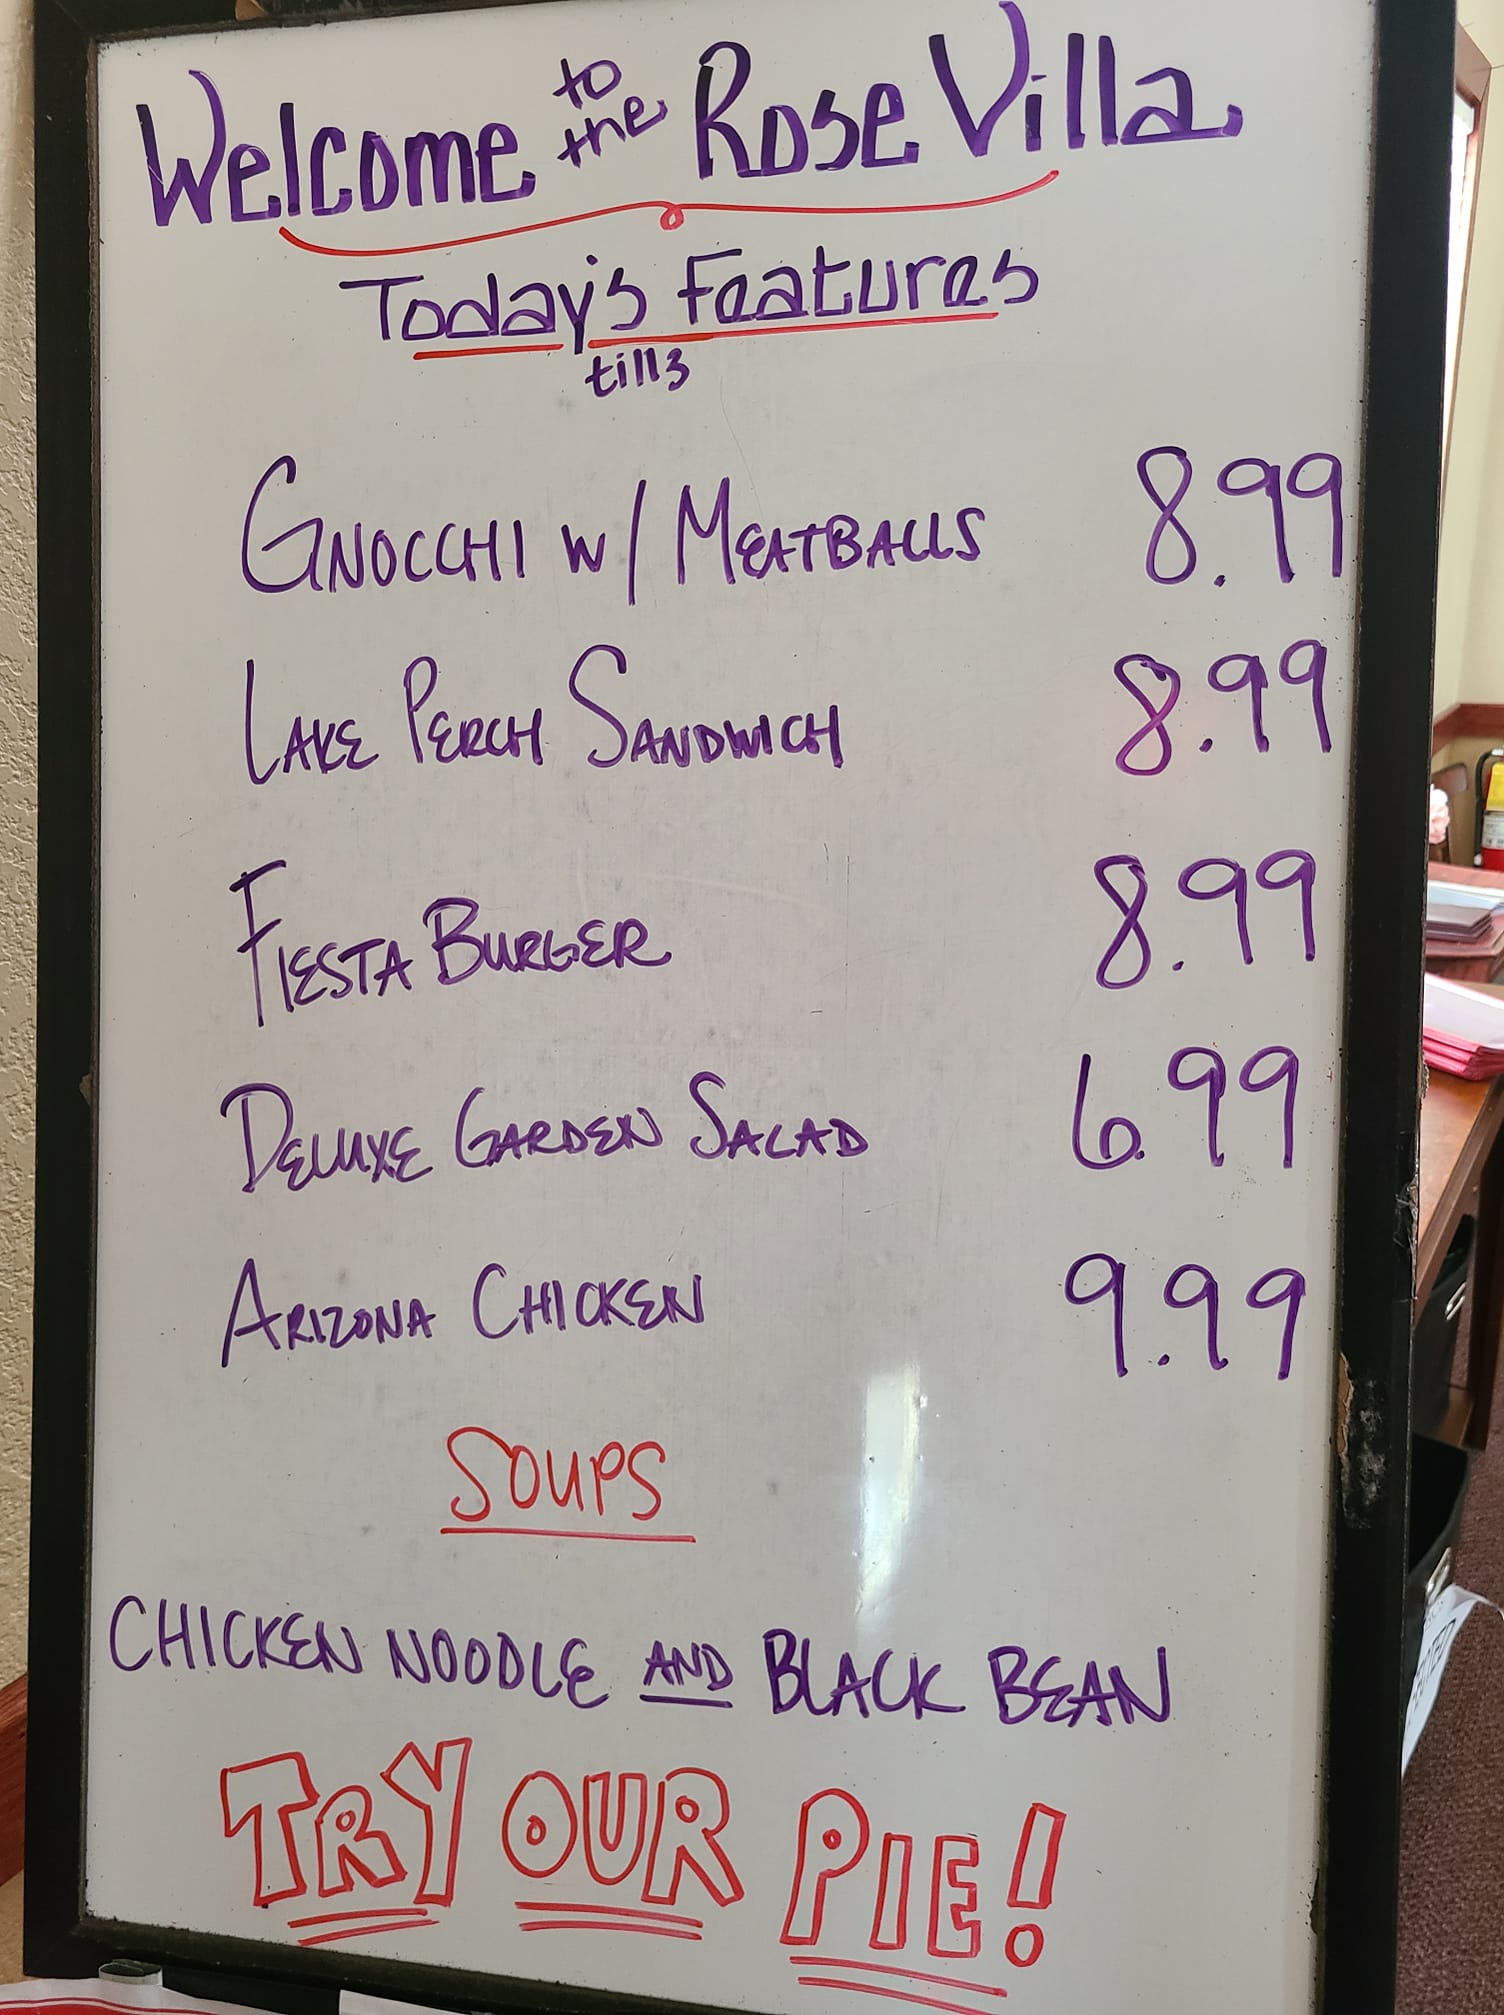 Welcome to the Rose Villa
Today's Features
till 3
GNOCCHI W/ MEATBALLS 8.99
LAKE PERCH SANDWICH 8.99
FIESTA BURGER 8.99
DELUXE GARDEN SALAD 6.99
ARIZONA CHICKEN 9.99
SOUPS
CHICKEN NOODLE AND BLACK BEAN
TRY OUR PIE!